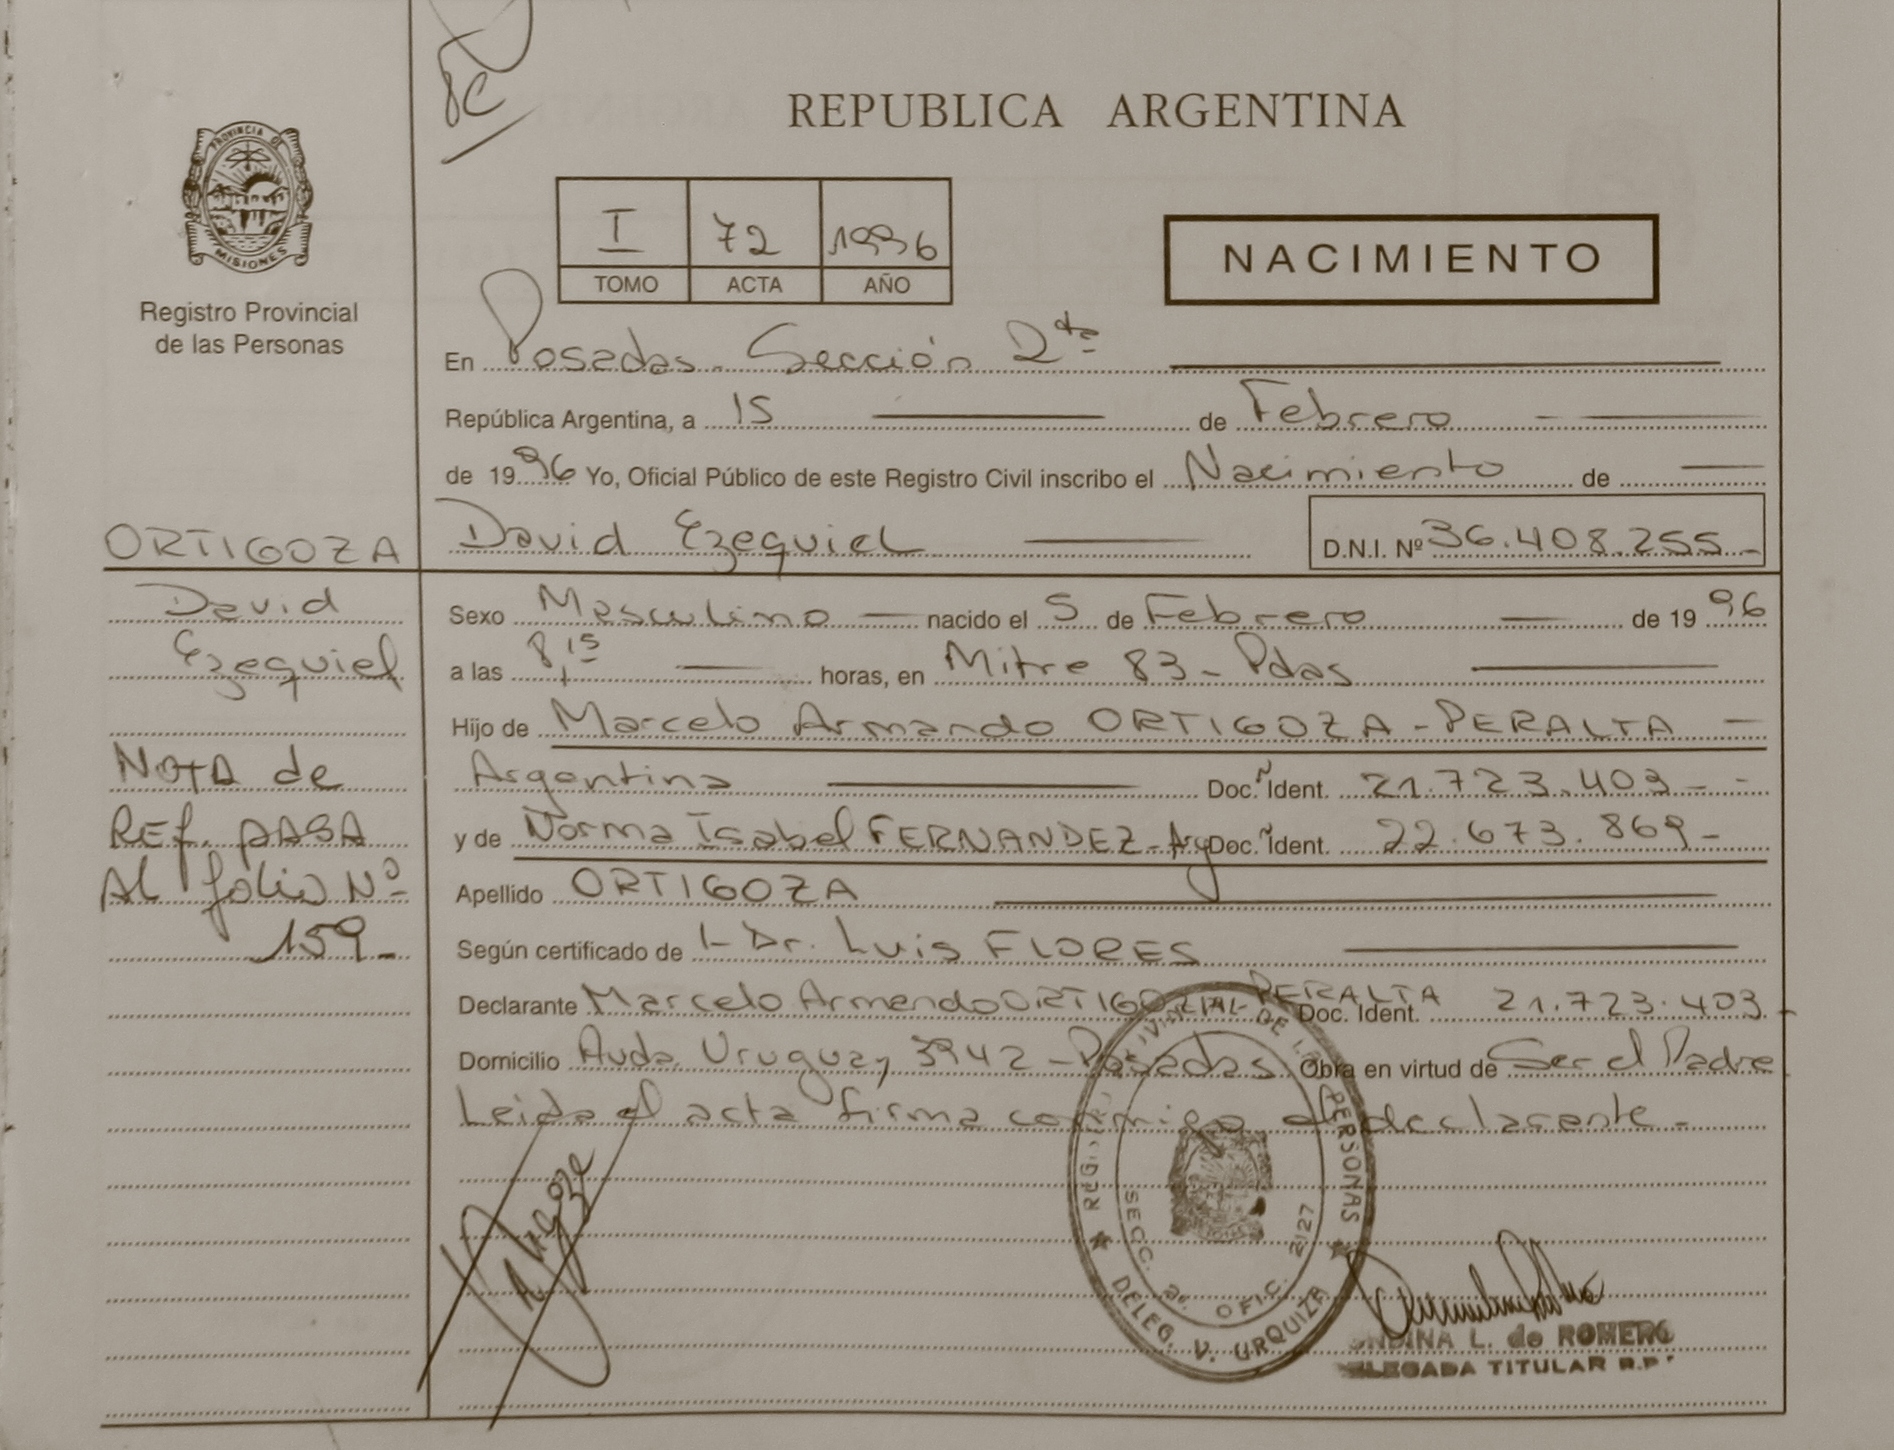 REPUBLICA ARGENTINA
PROVINCIA DE
MISIONES
Registro Provincial
de las Personas
I 72 1996
TOMO ACTA AÑO
NACIMIENTO
En Posadas. Sección 2da
República Argentina, a 15 de Febrero
de 1996 Yo, Oficial Público de este Registro Civil inscribo el Nacimiento de
David Ezequiel D.N.I. Nº 36.408.255
ORTIGOZA
David
Ezequiel
NOTA de
REF. PASA
AL folio Nº
159-
Sexo Masculino nacido el 5 de Febrero de 1996
a las 8,15 horas, en Mitre 83 - Pdas
Hijo de Marcelo Armando ORTIGOZA - PERALTA
Argentina Doc. Ident. 21.723.403
y de Norma Isabel FERNANDEZ - Arg Doc. Ident. 22.673.869
Apellido ORTIGOZA
Según certificado de Dr. Luis FLORES
Declarante Marcelo Armando ORTIGOZA - PERALTA Doc. Ident. 21.723.403
Domicilio Avda. Uruguay 3942 - Posadas Obra en virtud de Ser el Padre
Leida el acta firma conmigo el declarante.
PERSONAS
SECC. 2ª. OFIC. 2127
DELEG. V. URQUIZA
L. de ROMERO
TITULAR R.P.